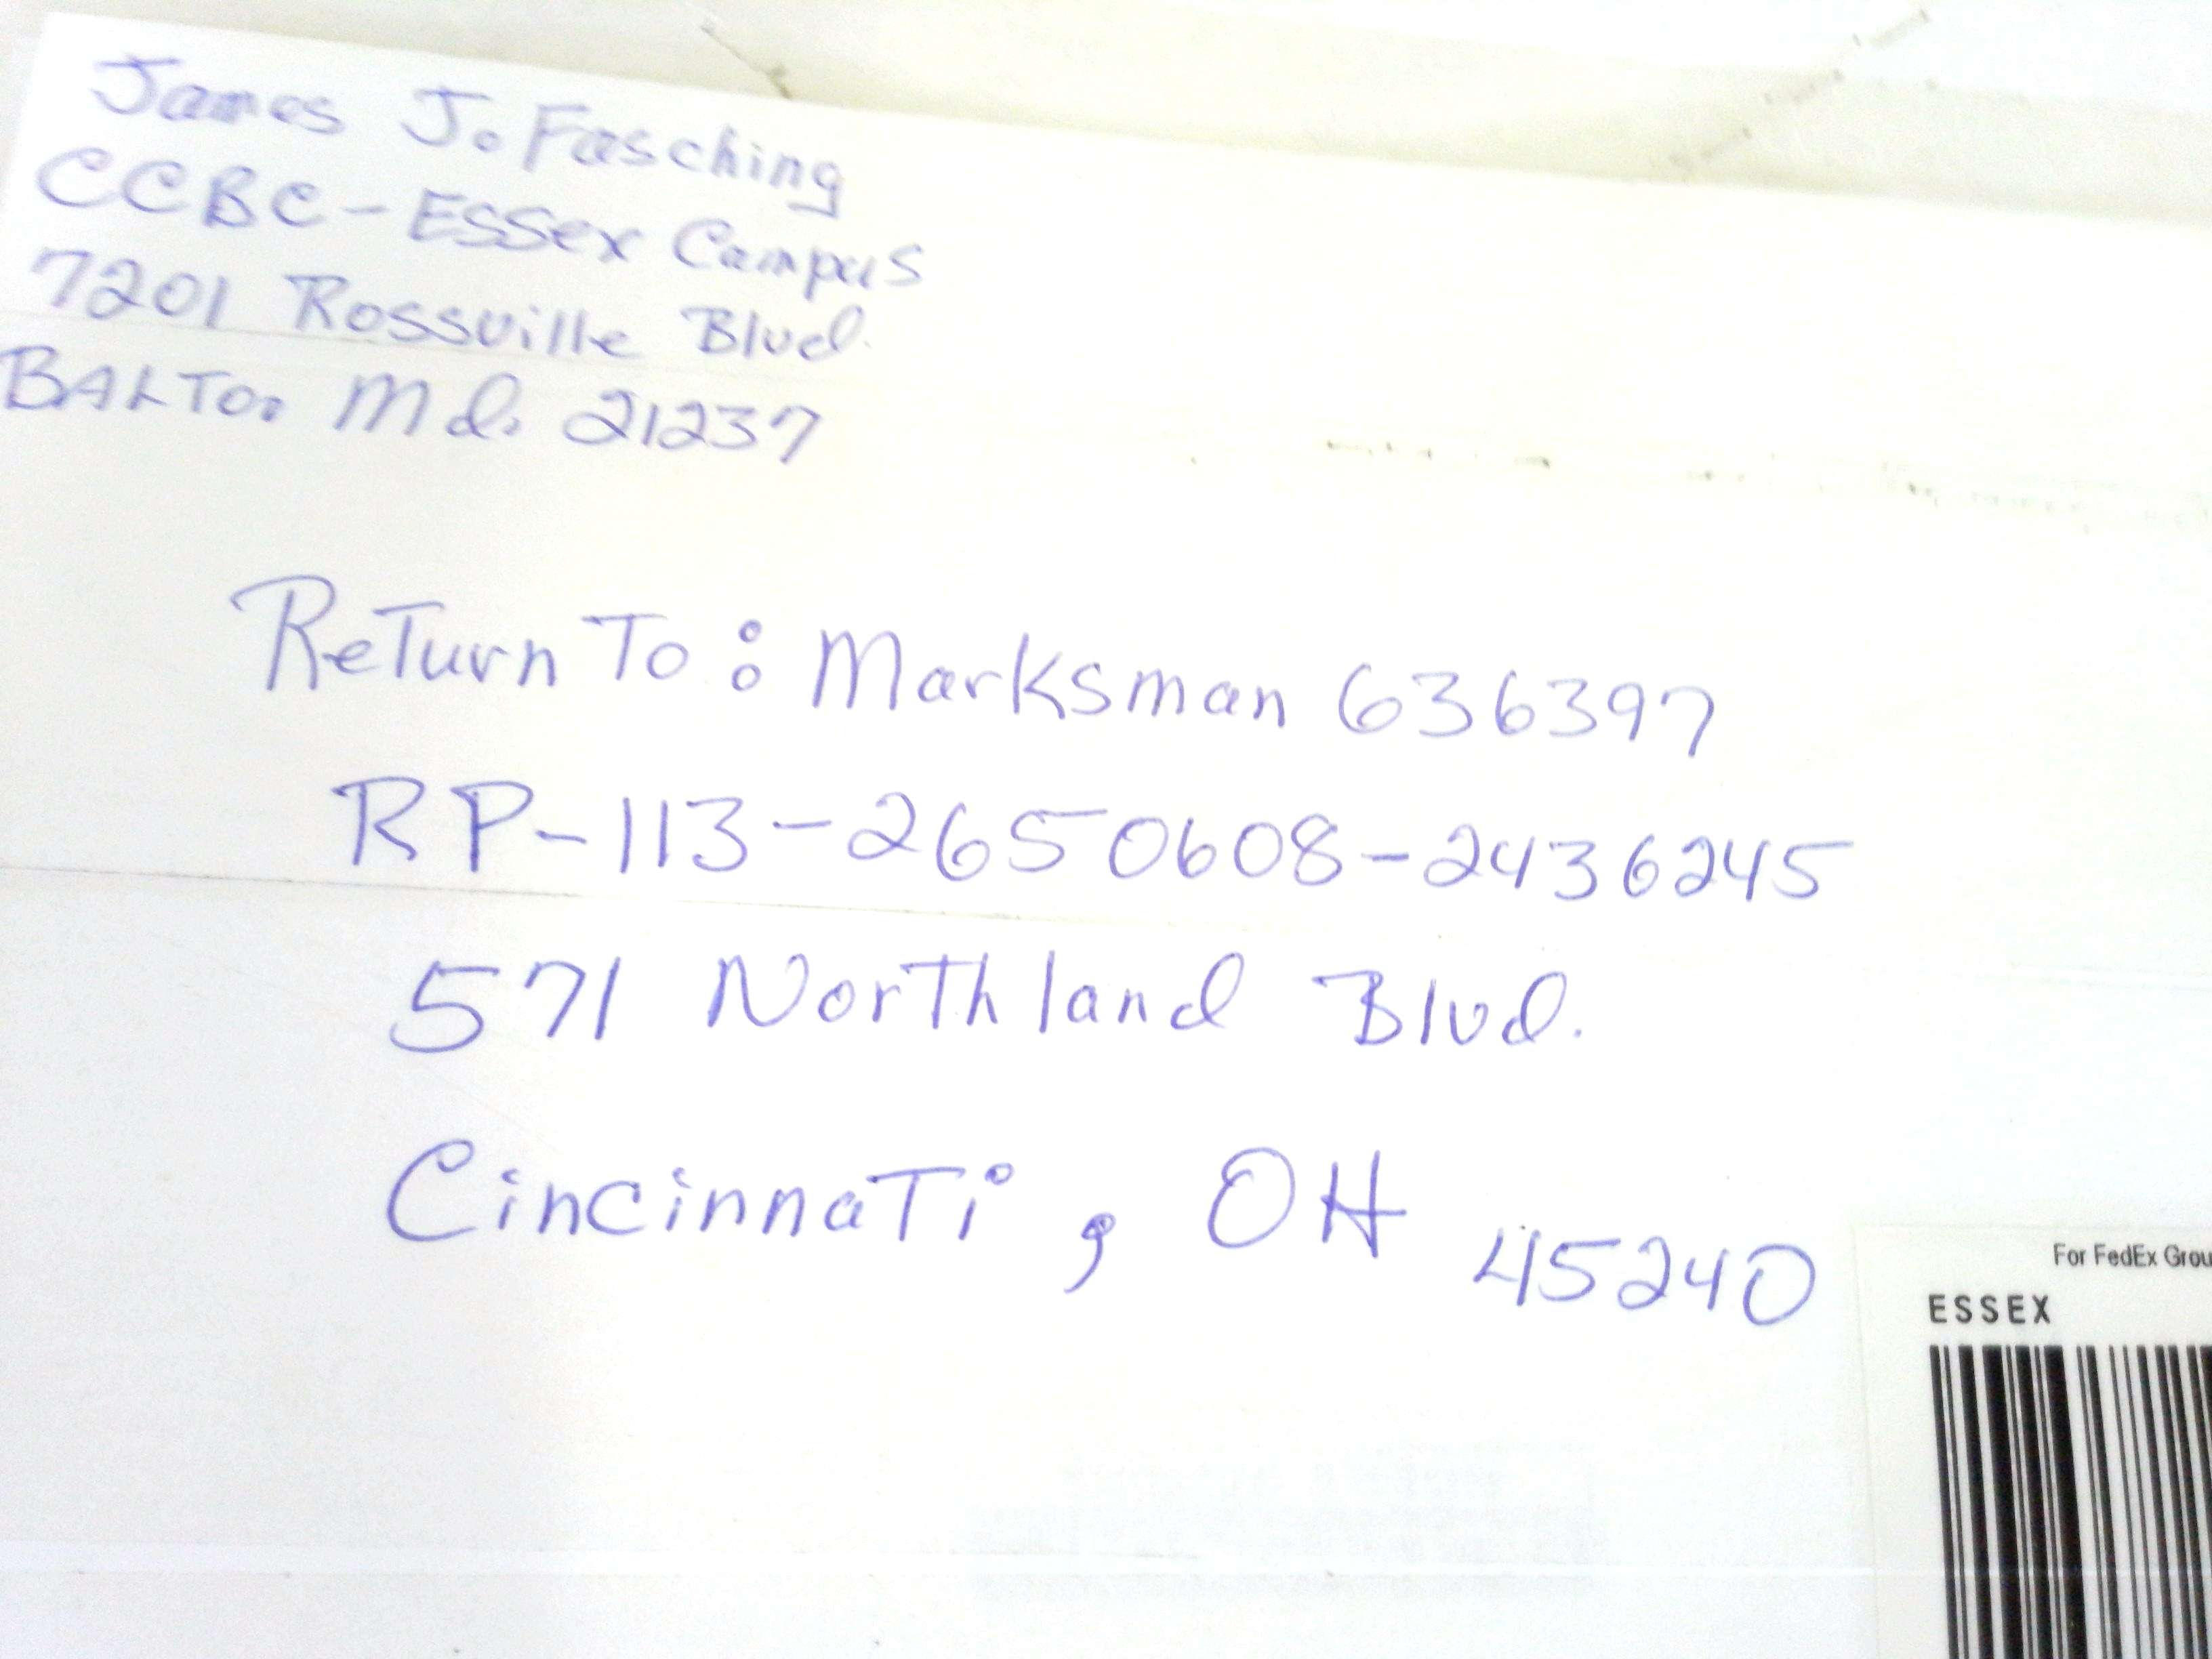 James J. Fasching
CCBC-Essex Campus
7201 Rossville Blvd.
BALTO. Md. 21237
Return To: Marksman 636397
RP-113-2650608-2436245
571 Northland Blvd.
Cincinnati, OH 45240
For FedEx Grou
ESSEX